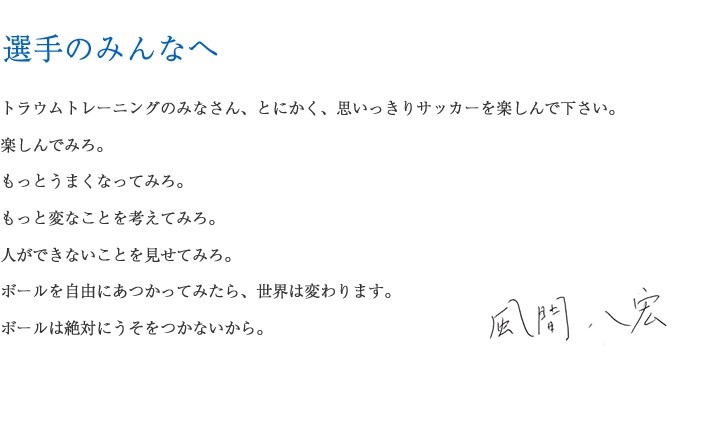 選手のみんなへ
トラウムトレーニングのみなさん、とにかく、思いっきりサッカーを楽しんで下さい。
楽しんでみろ。
もっとうまくなってみろ。
もっと変なことを考えてみろ。
人ができないことを見せてみろ。
ボールを自由にあつかってみたら、世界は変わります。
ボールは絶対にうそをつかないから。
風間八宏